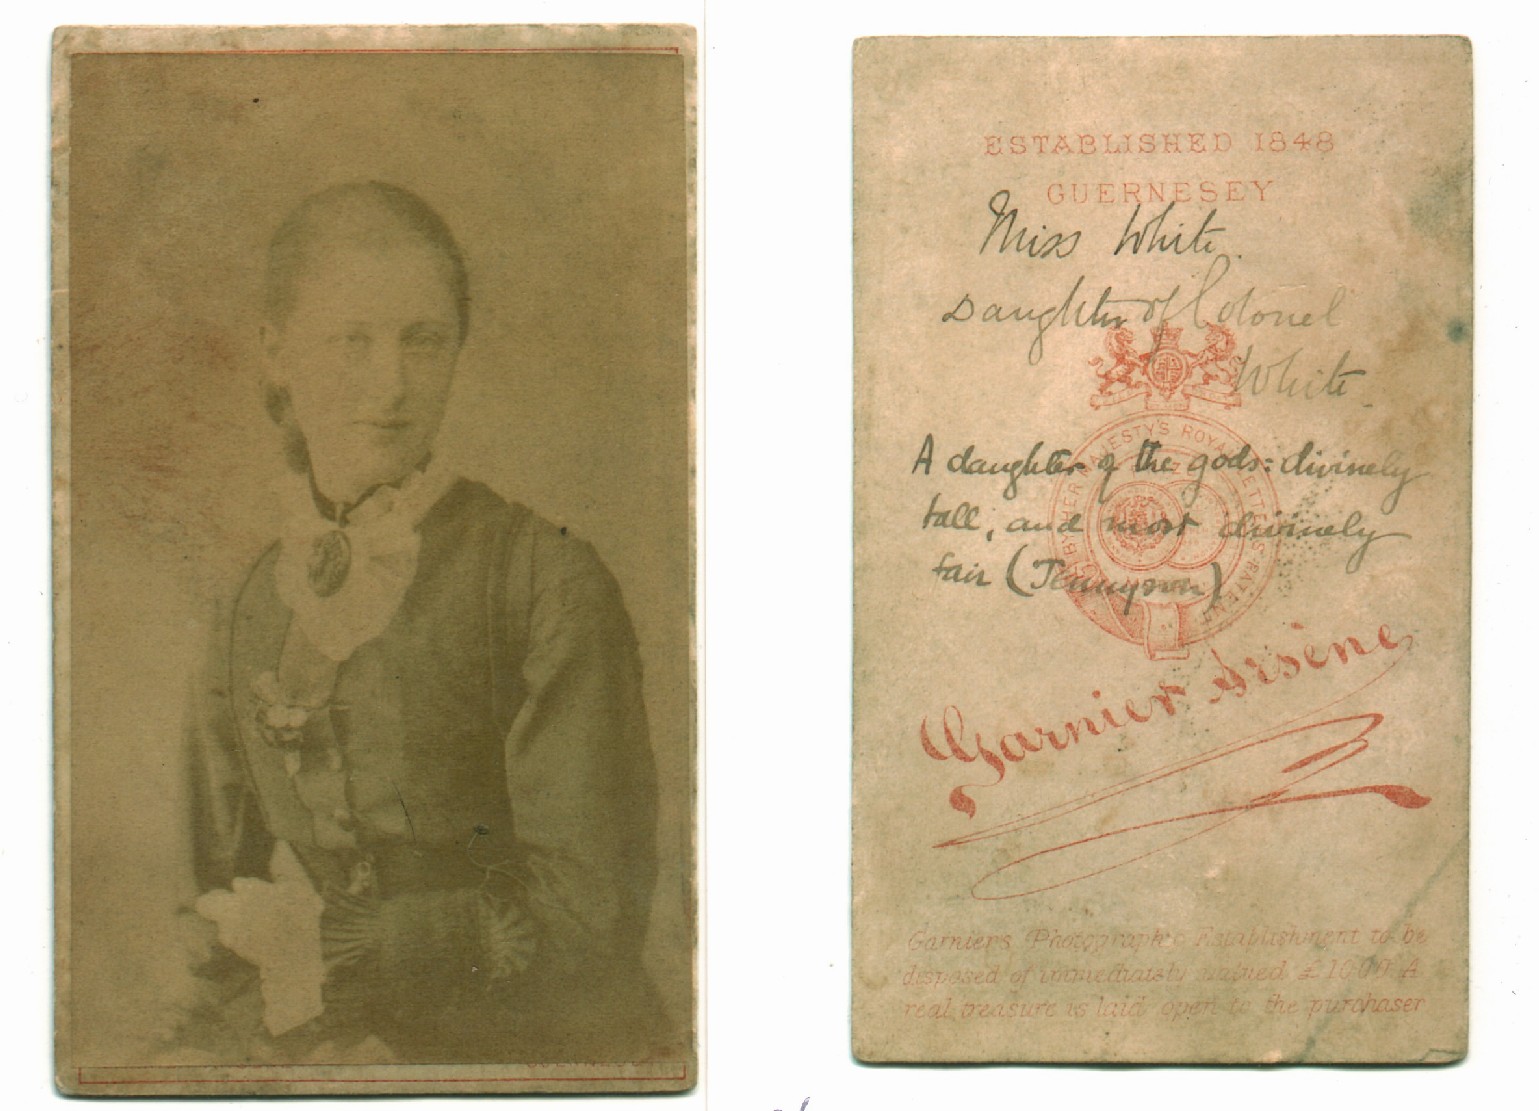 ESTABLISHED 1848
GUERNESEY
Miss White.
Daughter of Colonel
White.
BY HER MAJESTY'S ROYAL LETTERS PATENT
A daughter of the gods: divinely
tall, and most divinely
fair (Tennyson)
Garnier Arsène
Garnier's Photographic Establishment to be
disposed of immediately valued £1000 A
real treasure is laid open to the purchaser